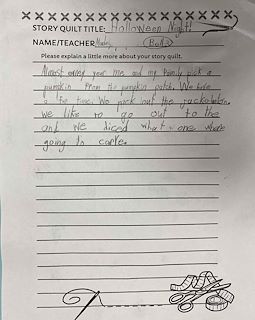 STORY QUILT TITLE: Halloween Night!
NAME/TEACHER
Please explain a little more about your story quilt.
Almost every year me and my family pick a
pumpkin from the pumpkin patch. We have
a fun time. We pick out the jackolantern.
we like to go out to the
and we diced what one where
going to carve.